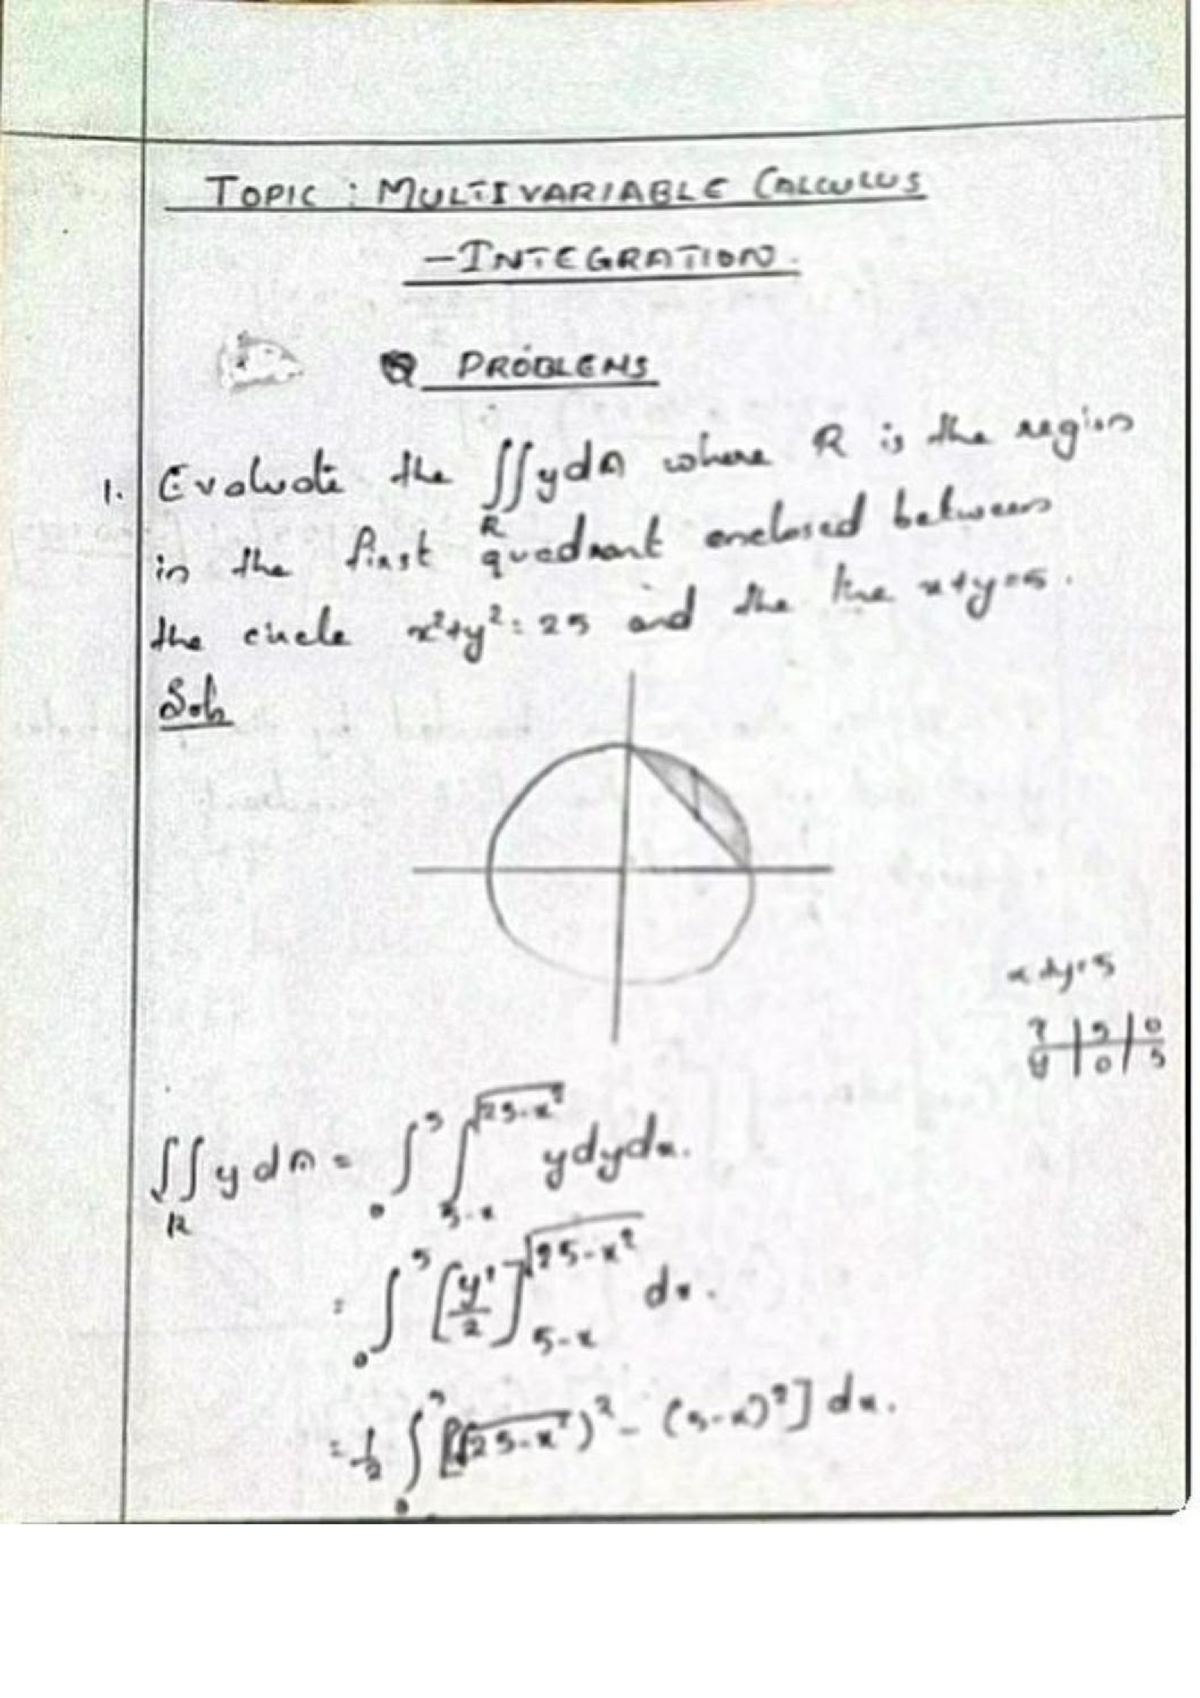 TOPIC : MULTIVARIABLE CALCULUS
-INTEGRATION.
PROBLEMS
1. Evaluate the ∬_R y dA where R is the region
in the first quadrant enclosed between
the circle x²+y²=25 and the line x+y=5.
Soln
x+y=5
x | 5 | 0
y | 0 | 5
∬_R y dA = ∫_0^5 ∫_{5-x}^{√(25-x²)} y dy dx.
= ∫_0^5 [y²/2]_{5-x}^{√(25-x²)} dx.
= 1/2 ∫_0^5 [(√(25-x²))² - (5-x)²] dx.